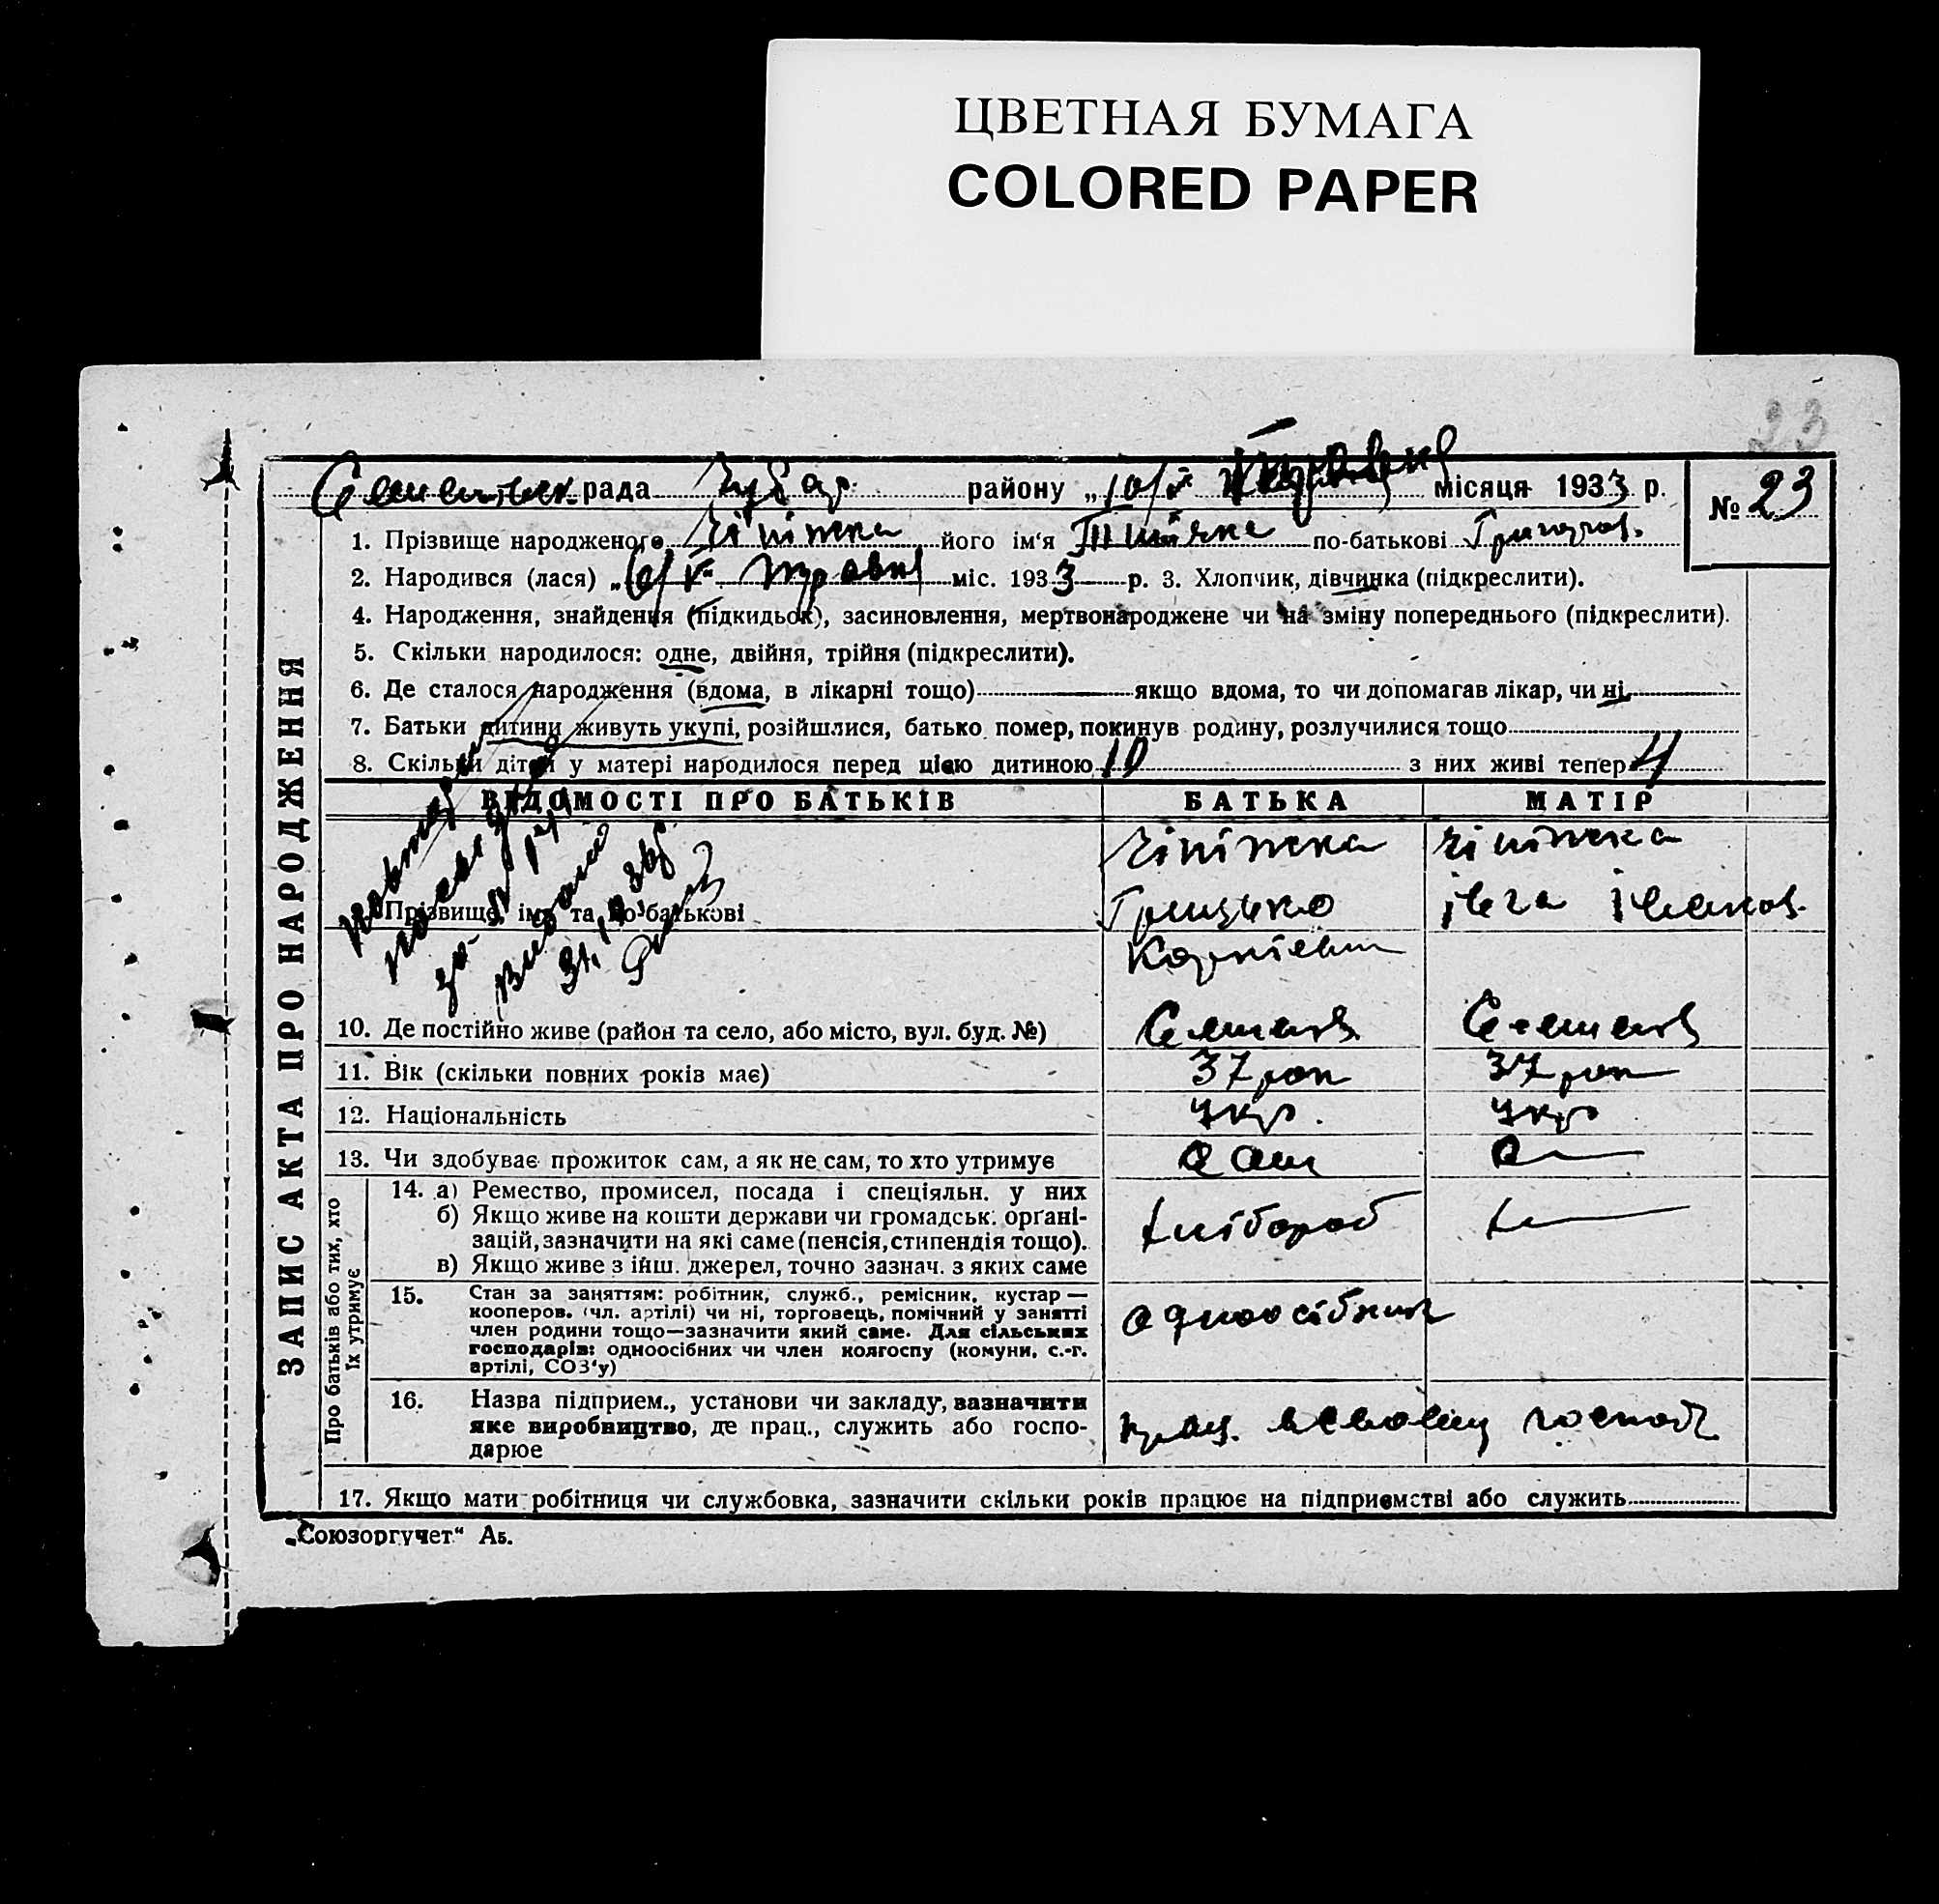 ЦВЕТНАЯ БУМАГА
COLORED PAPER
23
рада Чубар. району „10/V місяця 1933 р.
№ 23
1. Прізвище народженого Чіпіжка його ім'я по-батькові Григоров.
2. Народився (лася) „ міс. 1933 р. 3. Хлопчик, дівчинка (підкреслити).
4. Народження, знайдення (підкидьок), засиновлення, мертвонароджене чи на зміну попереднього (підкреслити).
5. Скільки народилося: одне, двійня, трійня (підкреслити).
6. Де сталося народження (вдома, в лікарні тощо) якщо вдома, то чи допомагав лікар, чи ні,
7. Батьки дитини живуть укупі, розійшлися, батько помер, покинув родину, розлучилися тощо
8. Скільки дітей у матері народилося перед цією дитиною 10 з них живі тепер 4
ЗАПИС АКТА ПРО НАРОДЖЕННЯ
ВІДОМОСТІ ПРО БАТЬКІВ БАТЬКА МАТІР
Чіпіжка Чіпіжка
Прізвище, ім'я та по-батькові Грицько Івга Іванов.
Корнієвич
10. Де постійно живе (район та село, або місто, вул. буд. №)
11. Вік (скільки повних років має) 37 рок 37 рок
12. Національність Укр. Укр
13. Чи здобуває прожиток сам, а як не сам, то хто утримує сам
Про батьків або тих, хто їх утримує
14. а) Ремество, промисел, посада і спеціяльн. у них
б) Якщо живе на кошти держави чи громадськ. органі-
зацій, зазначити на які саме (пенсія, стипендія тощо).
в) Якщо живе з інш. джерел, точно зазнач. з яких саме
хлібороб
15. Стан за заняттям: робітник, служб., ремісник, кустар —
кооперов. (чл. артілі) чи ні, торговець, помічний у занятті
член родини тощо—зазначити який саме. Для сільських
господарів: одноосібних чи член колгоспу (комуни, с.-г.
артілі, СОЗ'у)
одноосібник
16. Назва підприєм., установи чи закладу, зазначити
яке виробництво, де прац., служить або госпо-
дарюе
прац. в своему господ.
17. Якщо мати робітниця чи службовка, зазначити скільки років працює на підприємстві або служить
„Союзоргучет“ Аб.